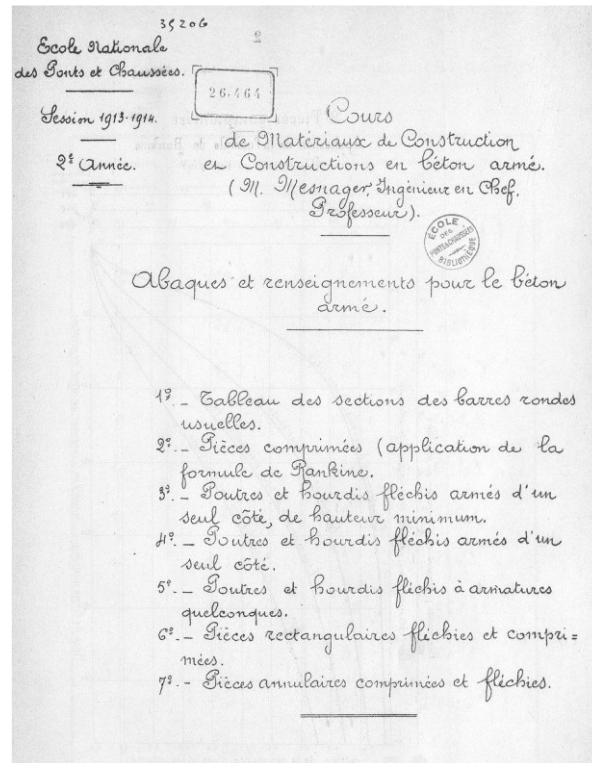 35206
Ecole Nationale
des Ponts et Chaussées.
26.464
Session 1913-1914.
2e Année.
Cours
de Matériaux de Construction
et Constructions en béton armé.
(M. Mesnager, Ingénieur en Chef,
Professeur).
ÉCOLE
DES
PONTS & CHAUSSÉES
BIBLIOTHÈQUE
Abaques et renseignements pour le béton
armé.
1º. - Tableau des sections des barres rondes
usuelles.
2º. - Pièces comprimées (application de la
formule de Rankine.
3º. - Poutres et hourdis fléchis armés d'un
seul côté, de hauteur minimum.
4º. - Poutres et hourdis fléchis armés d'un
seul côté.
5º. - Poutres et hourdis fléchis à armatures
quelconques.
6º. - Pièces rectangulaires fléchies et compri=
mées.
7º. - Pièces annulaires comprimées et fléchies.